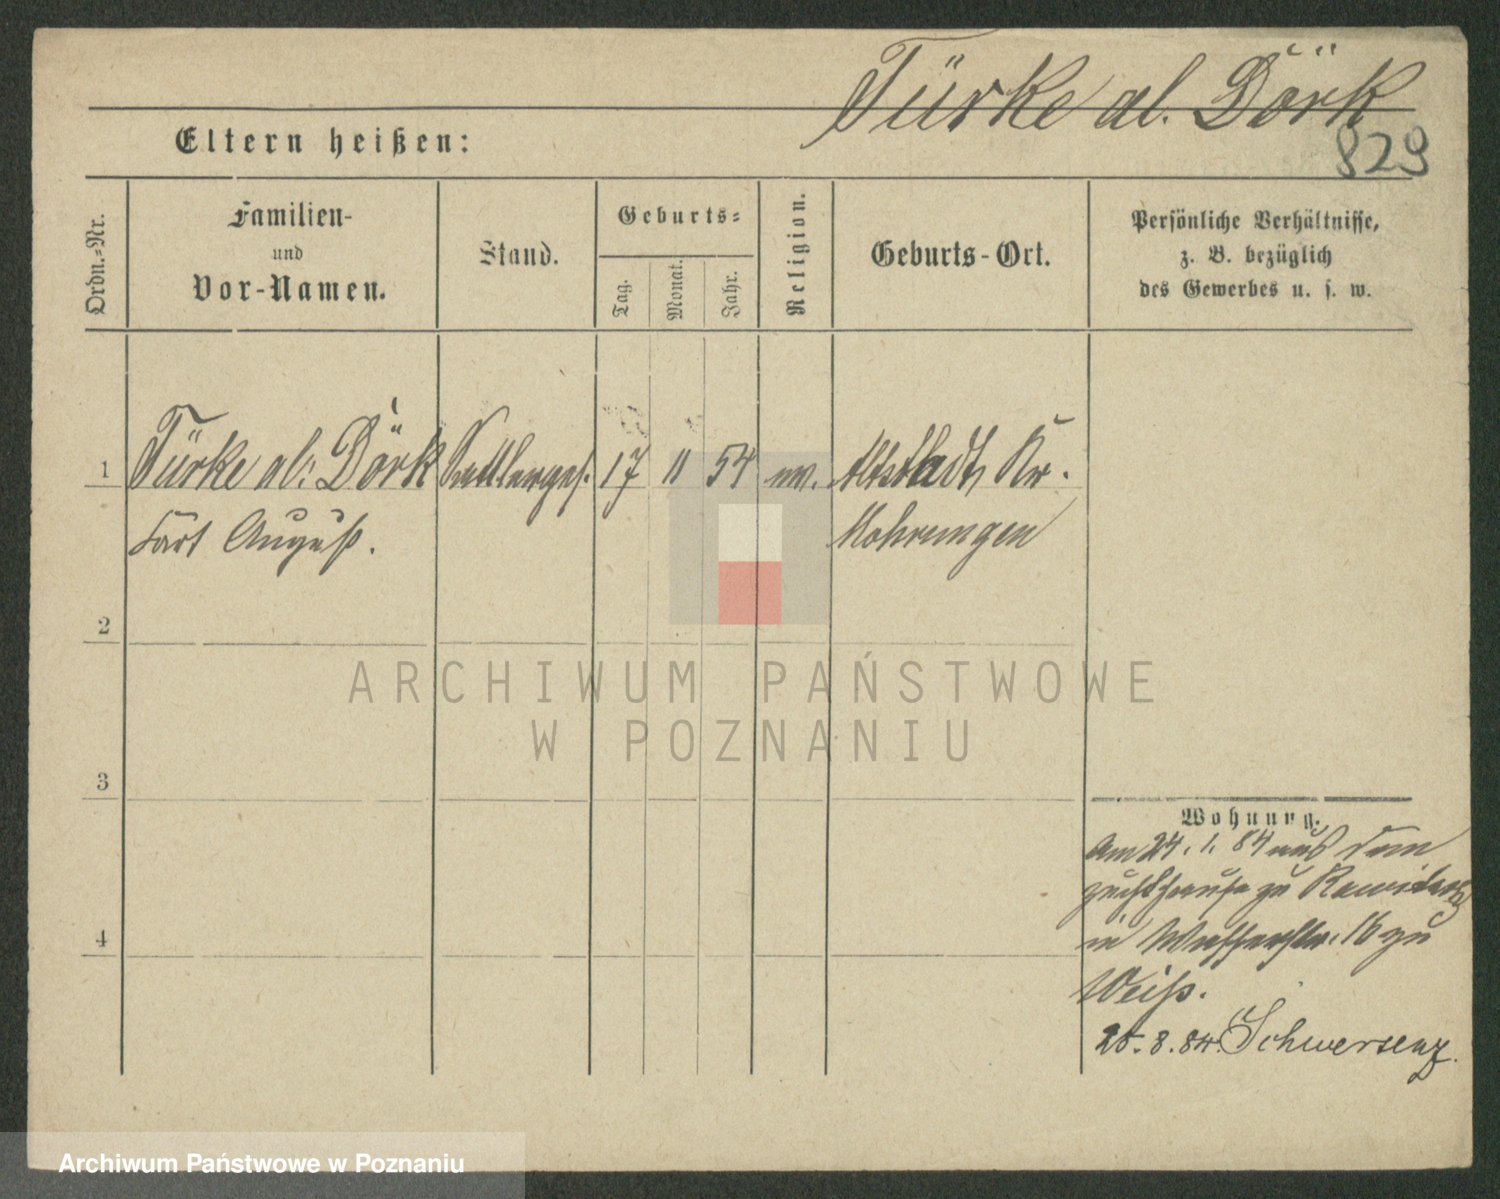 Türke al. Dörk
829
Eltern heißen:
Ordn.-Nr.
Familien-
und
Vor-Namen.
Stand.
Geburts-
Tag.
Monat.
Jahr.
Religion.
Geburts-Ort.
Persönliche Verhältnisse,
z. B. bezüglich
des Gewerbes u. s. w.
1
Türke al. Dörk
August.
Sattlerges.
17
11
54
ev.
Altstadt, Kr.
Mohrungen
2
3
4
Wohnung.
Am 24. 1. 84 aus dem
Zuchthause zu Rawitsch
in Wasserstr. 16 zu
Weiß.
25. 8. 84. Schwersenz.
ARCHIWUM PAŃSTWOWE
W POZNANIU
Archiwum Państwowe w Poznaniu